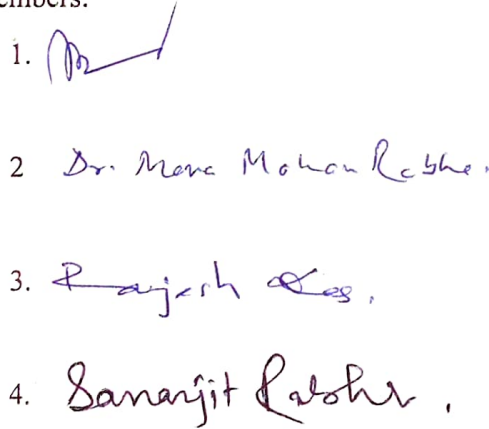 embers:
1.
2 Dr. Mona Mohan Rabha.
3. Rajesh Das.
4. Sananjit Rabha.